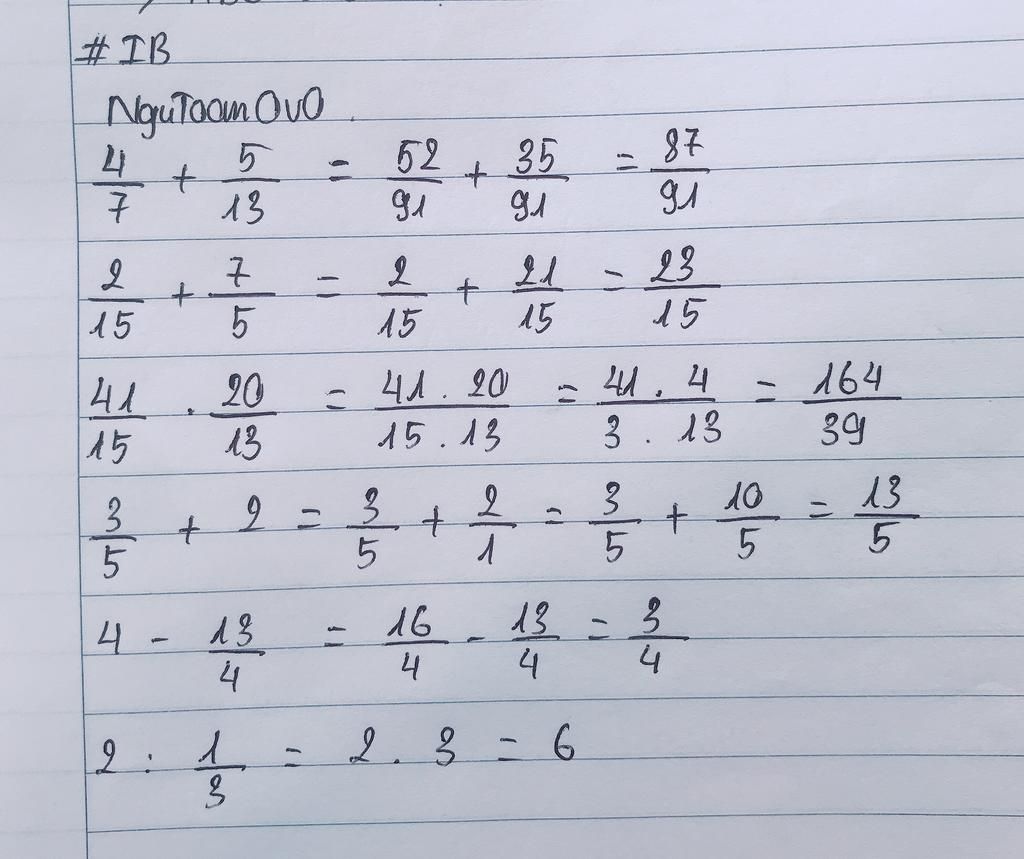 # IB
NguToanOvO
4/7 + 5/13 = 52/91 + 35/91 = 87/91
2/15 + 7/5 = 2/15 + 21/15 = 23/15
41/15 . 20/13 = 41 . 20/15 . 13 = 41 . 4/3 . 13 = 164/39
3/5 + 2 = 3/5 + 2/1 = 3/5 + 10/5 = 13/5
4 - 13/4 = 16/4 - 13/4 = 3/4
2 : 1/3 = 2 . 3 = 6